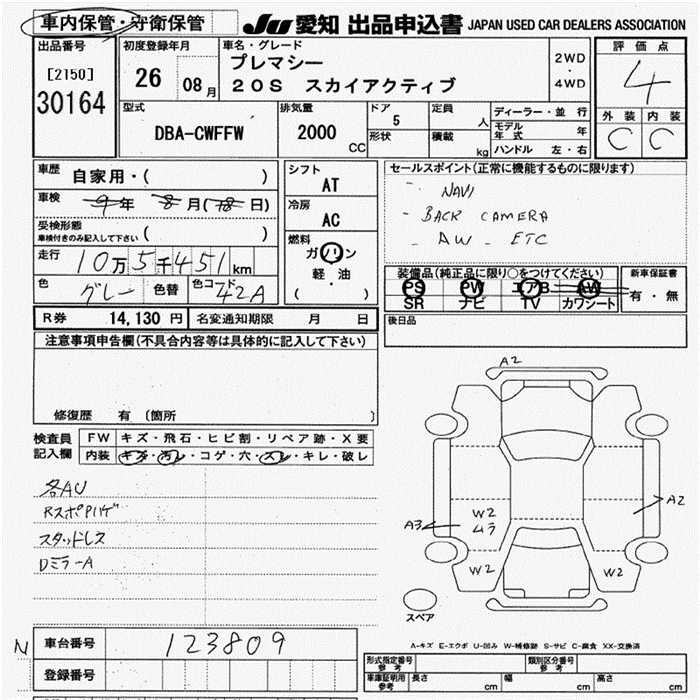 車内保管・守衛保管 JU 愛知 出品申込書 JAPAN USED CAR DEALERS ASSOCIATION
出品番号
[2150]
30164
初度登録年月
26 08月
車名・グレード
プレマシー
20S スカイアクティブ
2WD
・
4WD
評価点
4
外装 内装
C C
型式
DBA-CWFFW
排気量
2000
CC
ドア 5
形状
定員 人
積載 kg
ディーラー・並行
モデル年式 年
ハンドル 左・右
車歴
自家用・( )
車検
9年 8月(18日)
受検形態
車検付きのみ記入して下さい ( )
走行 10万5千451km
色 グレー 色替 色コード 42A
シフト
AT
冷房
AC
燃料
ガソリン
軽・油
( )
セールスポイント(正常に機能するものに限ります)
- NAVI
- BACK CAMERA
- AW - ETC
装備品(純正品に限り○をつけてください)
PS PW エアB AW
SR ナビ TV カワシート
新車保証書
有・無
後日品
R券 14,130円 名変通知期限 月 日
注意事項申告欄(不具合内容等は具体的に記入して下さい)
修復歴 有 〔箇所 〕
検査員
記入欄
FW キズ・飛石・ヒビ割・リペア跡・X要
内装 キズ・汚レ・コゲ・穴・スレ・キレ・破レ
各AU
RスポPハゲ
スタッドレス
Dミラ-A
A2
A2
W2
ムラ
A3
W2
W2
スペア
A-キズ E-エクボ U-凹み W-補修跡 S-サビ C-腐食 XX-交換済
N 車台番号 123809
登録番号
形式指定番号
参考
類別区分番号
参考
車庫証明用
参考
長さ cm 幅 cm 高さ cm